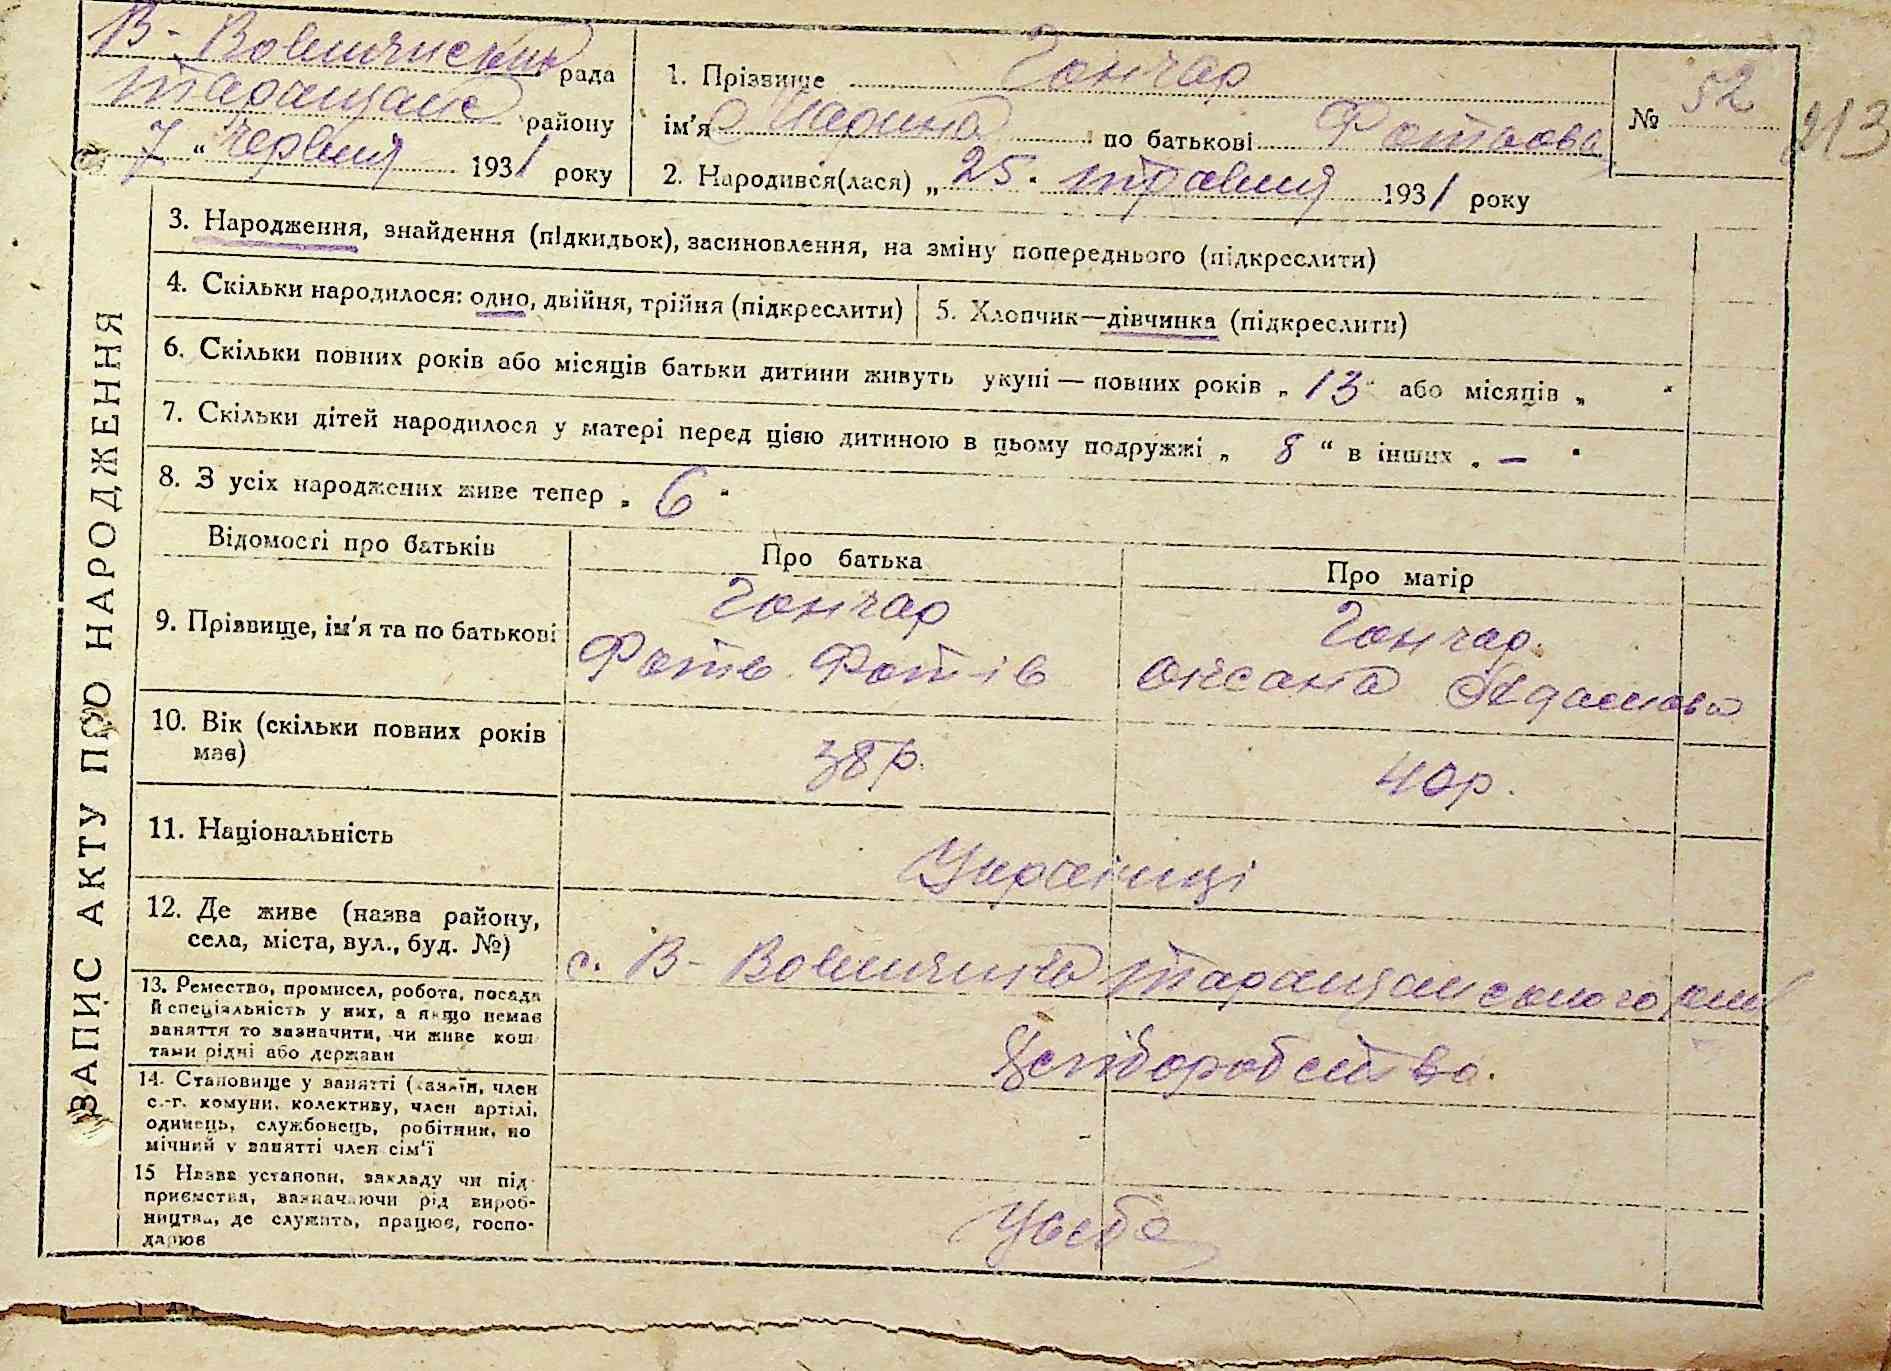 В-Вовнянська рада
Таращанс району
„ 7 “ червня 1931 року
1. Прізвище Гончар
ім'я Марина по батькові Фотіова
2. Народився(лася) „ 25 “ травня 1931 року
№ 52
213
ЗАПИС АКТУ ПРО НАРОДЖЕННЯ
3. Народження, знайдення (підкидьок), засиновлення, на зміну попереднього (підкреслити)
4. Скільки народилося: одно, двійня, трійня (підкреслити)
5. Хлопчик—дівчинка (підкреслити)
6. Скільки повних років або місяців батьки дитини живуть укупі — повних років „ 13 “ або місяців „ “
7. Скільки дітей народилося у матері перед цією дитиною в цьому подружжі „ 8 “ в інших „ – “
8. З усіх народжених живе тепер „ 6 “
Відомості про батьків
Про батька
Про матір
9. Прізвище, ім'я та по батькові
Гончар
Фотів Фотів
Гончар
Оксана Адамова
10. Вік (скільки повних років
має)
38 р.
40 р.
11. Національність
Українці
12. Де живе (назва району,
села, міста, вул., буд. №)
с. В-Вовнянка Таращанського
13. Ремество, промисел, робота, посада
й спеціяльність у них, а якщо немає
заняття то зазначити, чи живе кош
тами рідні або держави
Хліборобство.
14. Становище у занятті (хазяїн, член
с.-г. комуни, колективу, член артілі,
одинець, службовець, робітник, по
мічний у занятті член сім'ї
-
15 Назва установи, закладу чи під-
приємства, зазначаючи рід вироб-
ництва, де служить, працює, госпо-
дарює